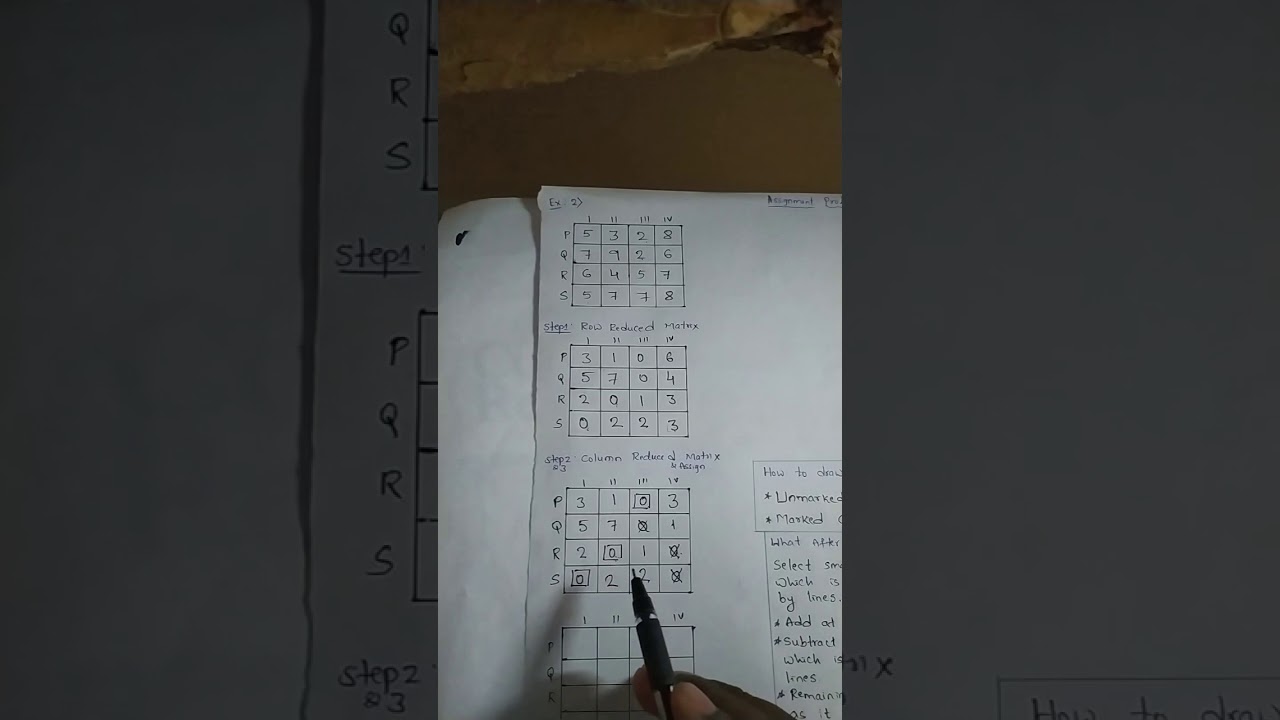 Ex: 2)
Assignment
I II III IV
P 5 3 2 8
Q 7 9 2 6
R 6 4 5 7
S 5 7 7 8
Step1: Row Reduced Matrix
I II III IV
P 3 1 0 6
Q 5 7 0 4
R 2 0 1 3
S 0 2 2 3
Step2: Column Reduced Matrix
&3 & Assign
I II III IV
P 3 1 0 3
Q 5 7 0 1
R 2 0 1 0
S 0 2 2 0
I II IV
P
Q
R
How to draw
* Unmarked
* Marked
What After
Select
which is
by lines.
* Add at
* Subtract
which is
lines.
* Remaining
as it
Q
R
S
Step1:
P
Q
R
S
Step2
&3
How to draw